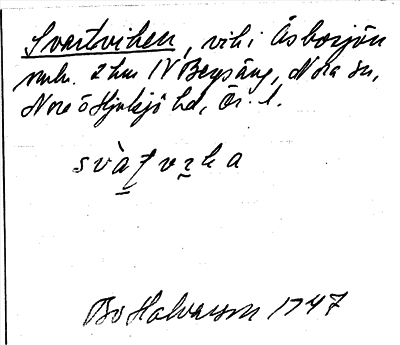 Svartviken, vik i Åsbosjön
omkr. 2 km N Bergsäng, Nora sn,
Nora o Hjulsjö hd, Ör. l.
svàtvıka
Bo Halvarson 1947